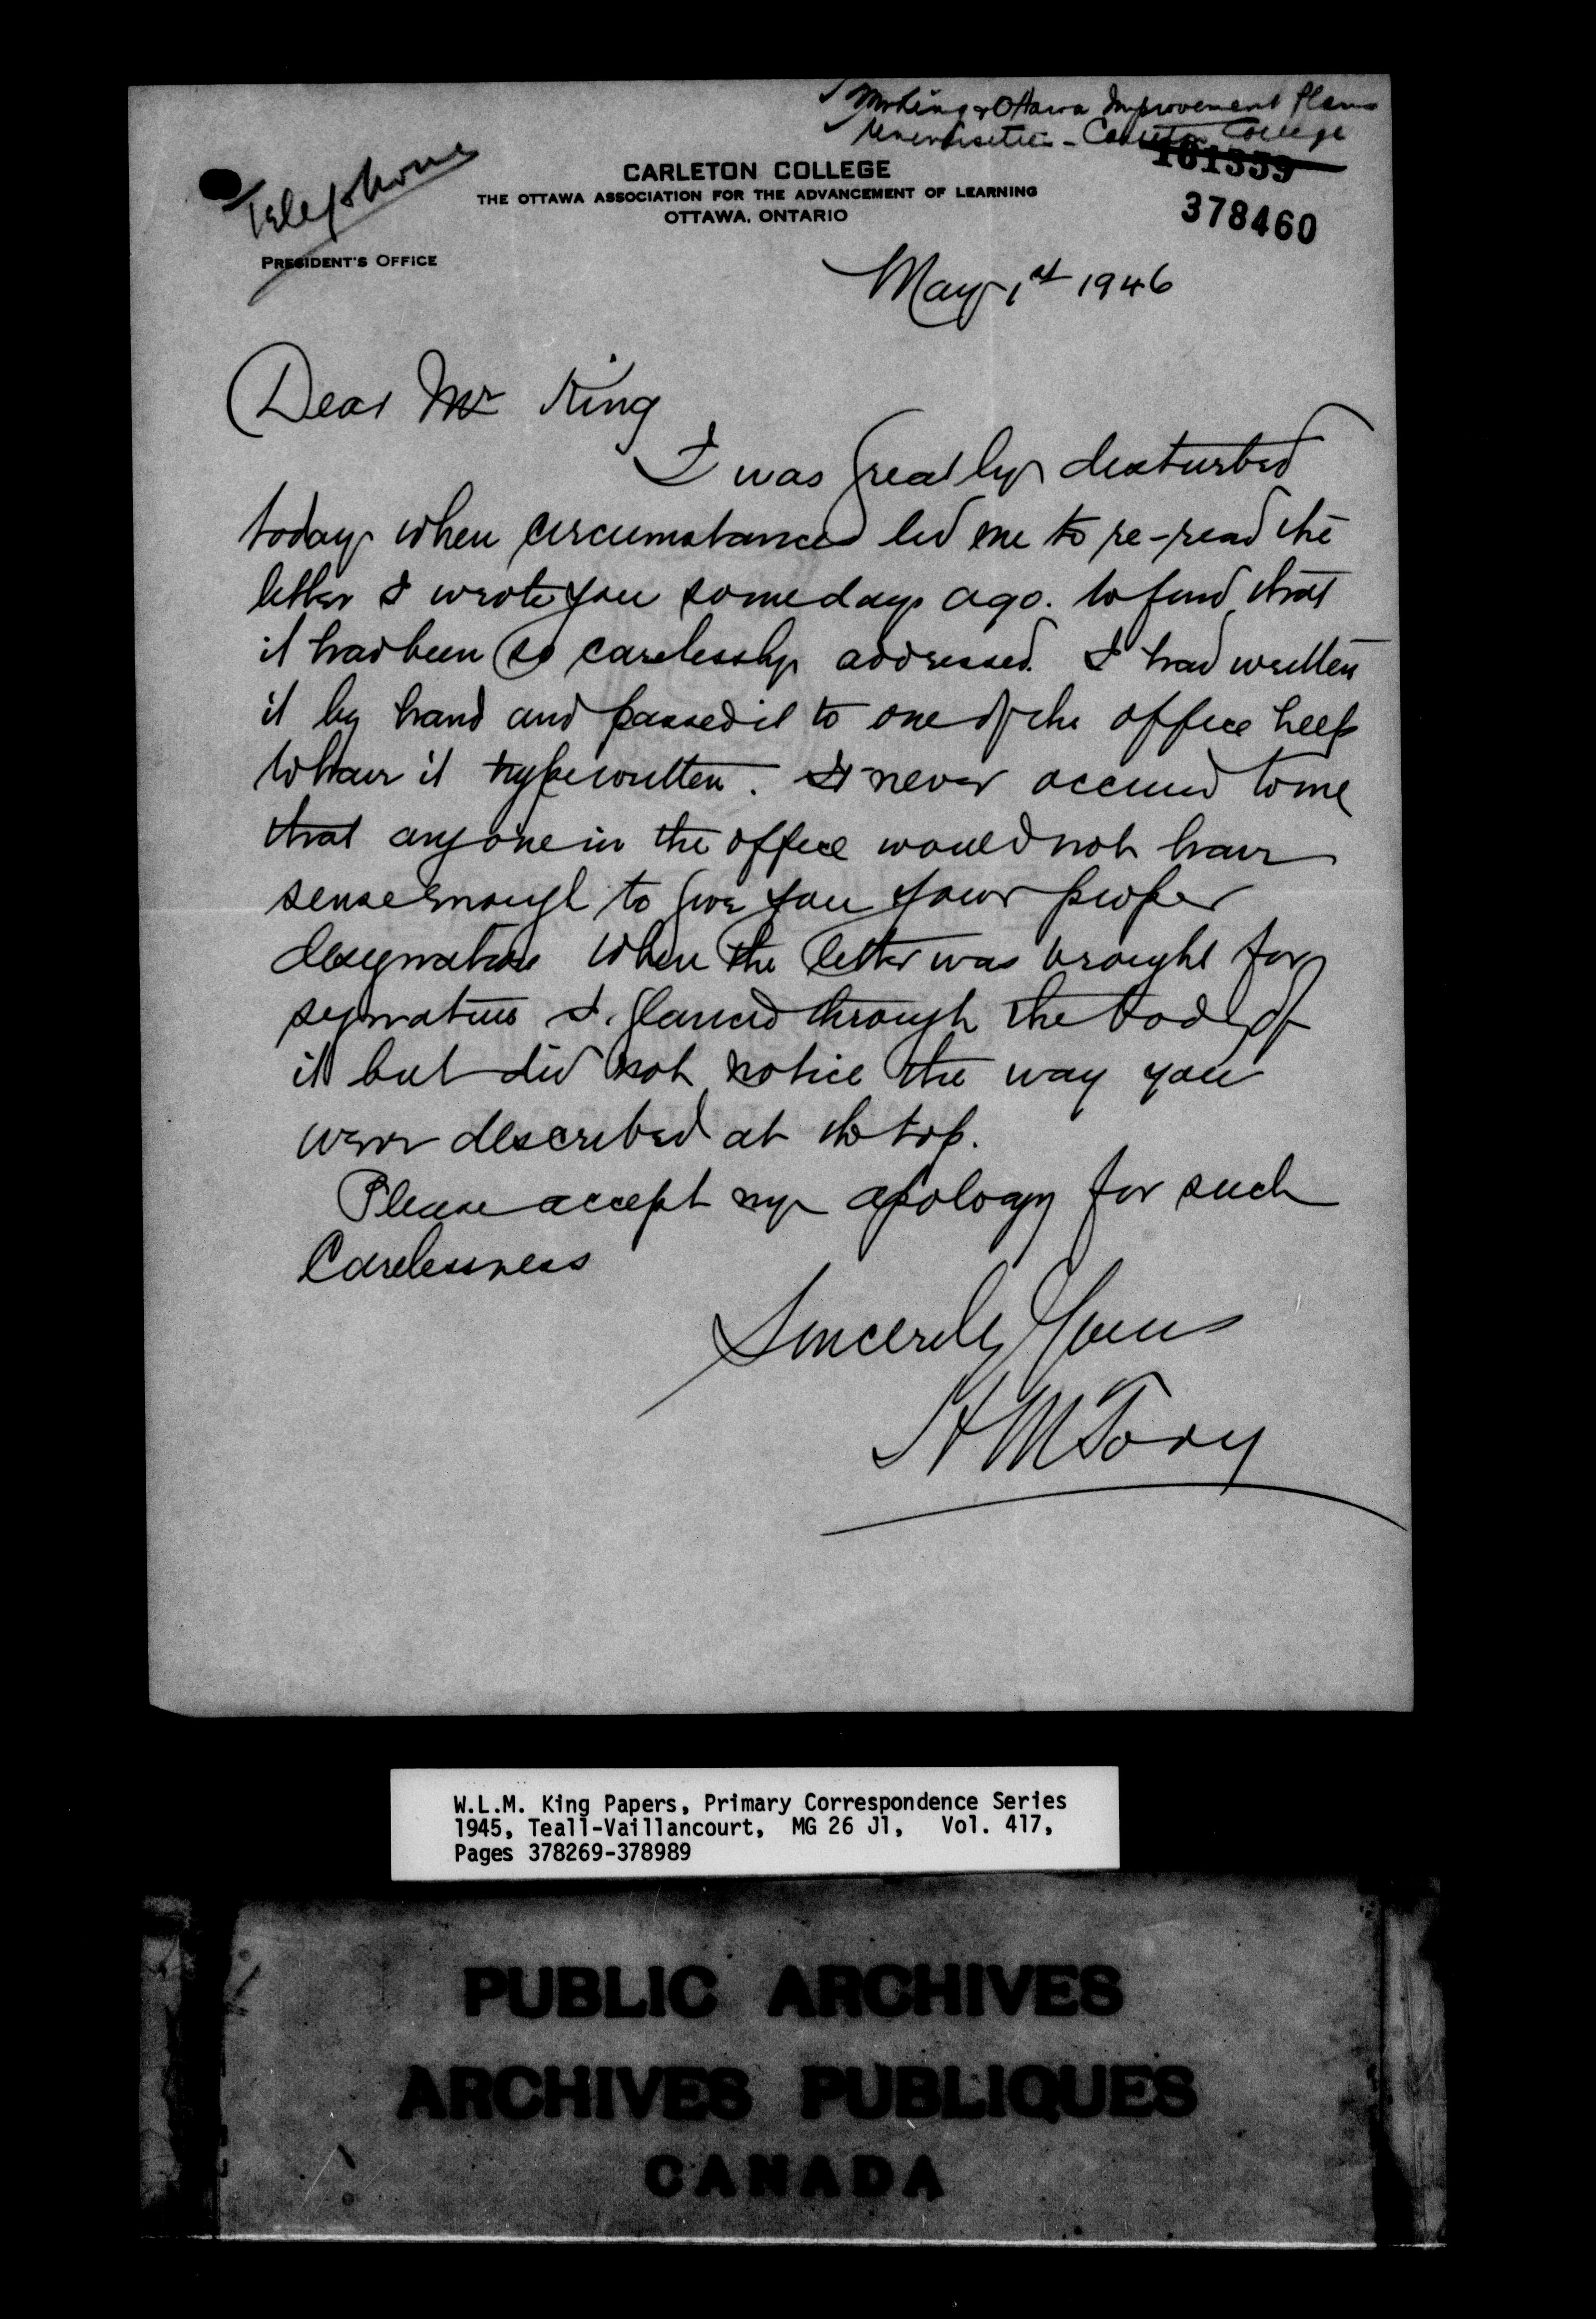 Mr King & Ottawa Improvement Plans
Universities - Carleton College
161339
378460
Telephone
CARLETON COLLEGE
THE OTTAWA ASSOCIATION FOR THE ADVANCEMENT OF LEARNING
OTTAWA, ONTARIO
PRESIDENT'S OFFICE
May 1st 1946
Dear Mr King
I was greatly disturbed
today when circumstances led me to re-read the
letter I wrote you some days ago. to find that
it had been so carelessly addressed. I had written
it by hand and passed it to one of the office help
to have it typewritten. It never occured to me
that anyone in the office would not have
sense enough to give you your proper
designation When the letter was brought for
signature I glanced through the body of
it but did not notice the way you
were described at the top.
Please accept my apology for such
Carelessness
Sincerely Yours
H M Tory
W.L.M. King Papers, Primary Correspondence Series
1945, Teall-Vaillancourt, MG 26 J1, Vol. 417,
Pages 378269-378989
PUBLIC ARCHIVES
ARCHIVES PUBLIQUES
CANADA